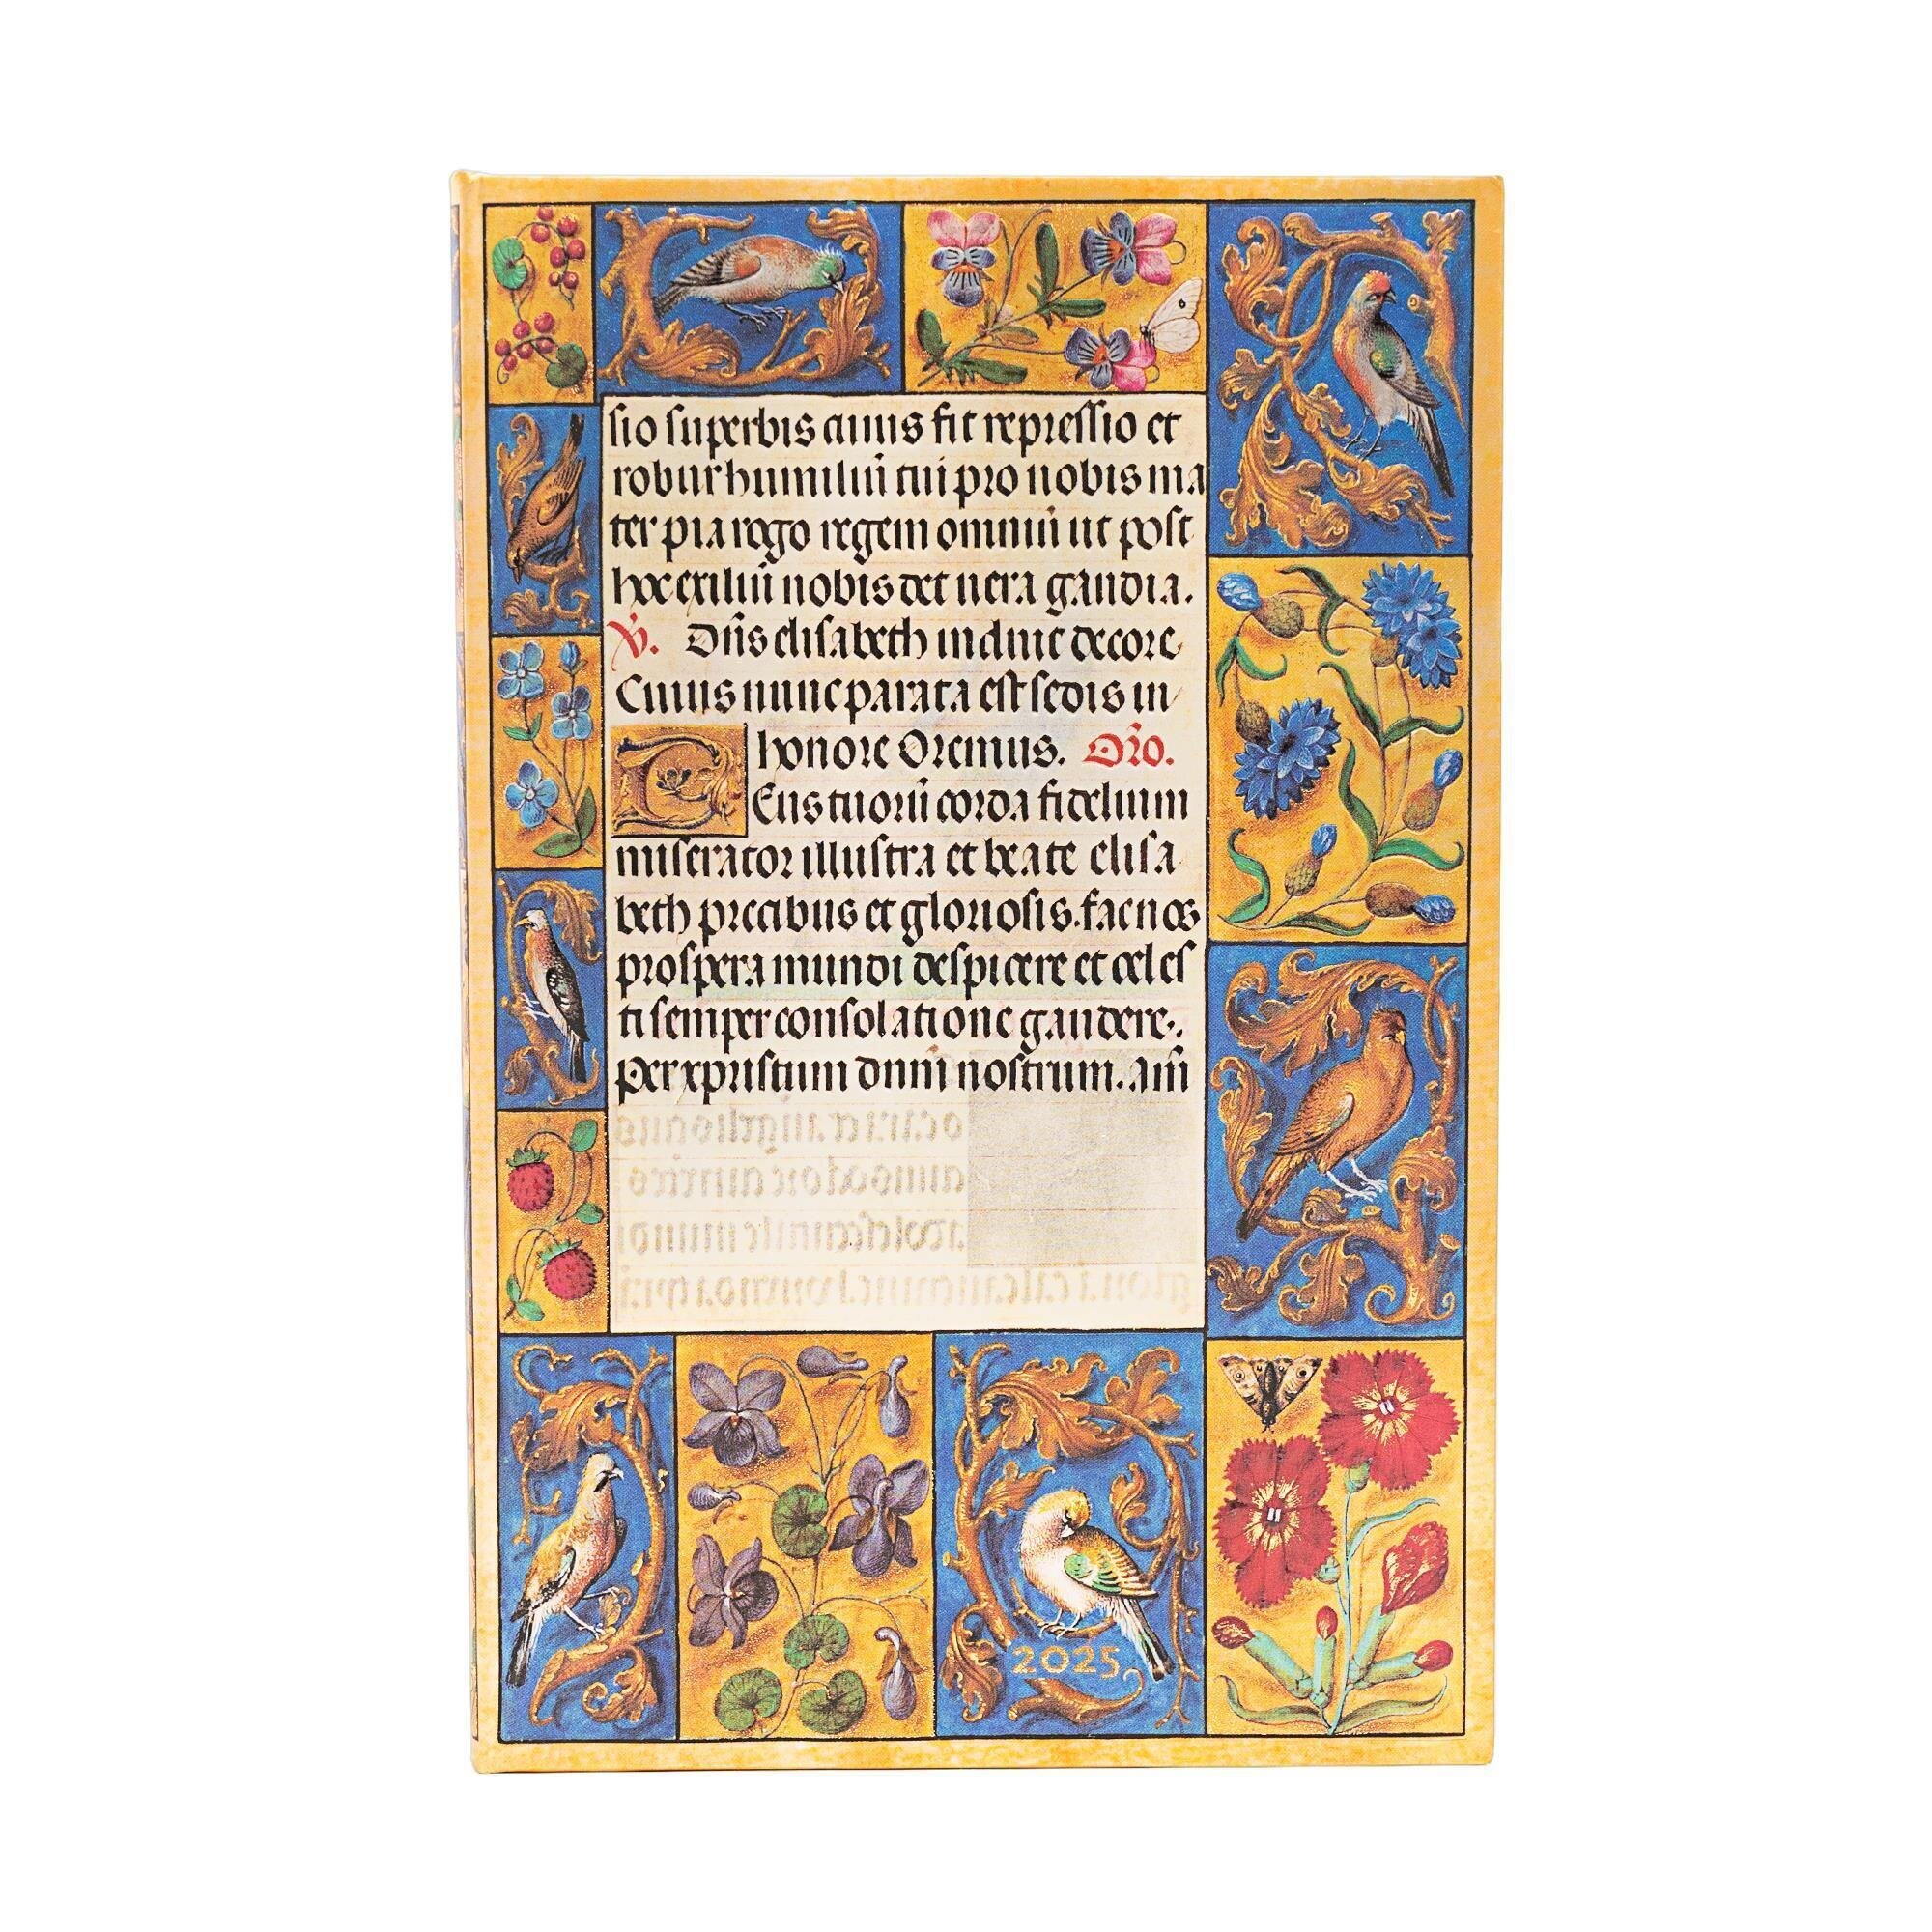 sio superbis cuius fit repressio et
robur humiliū tui pro nobis ma
ter pia rogo regem omniū ut post
hoc exiliū nobis det vera gaudia.
℣. Dn̄s elisabeth induit decore
Cuius nunc parata est sedis in
honore Oremus. Or̄o.
Deus tuorū corda fidelium
miserator illustra et beate elisa
beth precibus et gloriosis. fac nos
prospera mundi despicere et celes
ti semper consolatione gaudere.
Per xpristum dnm̄ nostrum. Am̄
2025